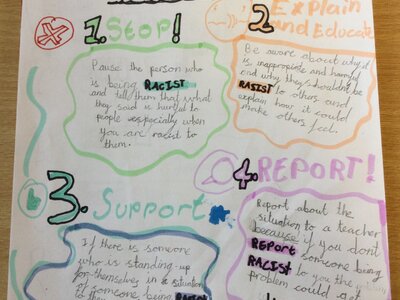 1. Stop!
Pause the person who
is being RACIST
and tell them that what
they said is hurtful to
people especially when
you are racist to
them.
2 Explain
and Educate
Be aware about why it
is inappropriate and harmful
and why they shouldn't be
RASIST to others and
explain how it could
make others feel.
3. Support
If there is someone
who is standing-up
for themselves in a situation
of someone being
4. REPORT!
Report about the
situation to a teacher
because if you don't
REPORT someone being
RACIST to you the
problem could get